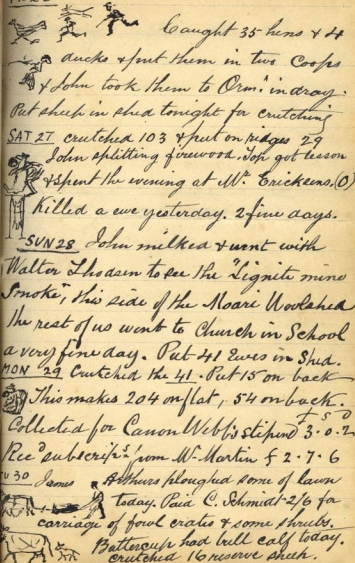 Caught 35 hens & 4
ducks & put them in two Coops
& John took them to Orm. in dray.
Put sheep in shed tonight for crutching
SAT 27 crutched 103 & put on ridges 29
John splitting firewood. Jon got lesson
& spent the evening at Mr. Ericksens. (O)
Killed a ewe yesterday. 2 fine days.
SUN 28 John milked & went with
Walter Thodsen to see the "Lignite mine
Smoke", this side of the Moari Woolshed
the rest of us went to Church in School
a very fine day. Put 41 Ewes in Shed.
MON 29 Crutched the 41. Put 15 on back
This makes 204 on flat, 54 on back.
£ S D
Collected for Canon Webb's stipend 3.0.2
Recd subscri from Mr Martin £ 2.7.6
30 James Arthurs ploughed some of lawn
today. Paid C. Schmidt 2/6 for
carriage of fowl crates & some shrubs.
Buttercup had bull calf today.
crutched 16 reserve sheep.